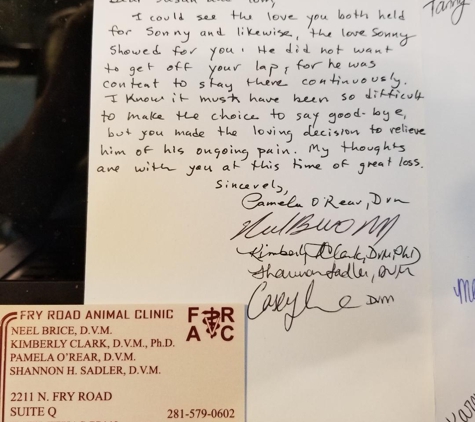 Dear Susan and Tony,
I could see the love you both held
for Sonny and likewise, the love Sonny
showed for you. He did not want
to get off your lap, for he was
content to stay there continuously.
I know it must have been so difficult
to make the choice to say good-bye,
but you made the loving decision to relieve
him of his ongoing pain. My thoughts
are with you at this time of great loss.
Sincerely,
Pamela O'Rear, Dvm
Kimberly Clark, DVM, PhD
Shannon Sadler, DVM
Casey DVM
FRY ROAD ANIMAL CLINIC
F R
A C
NEEL BRICE, D.V.M.
KIMBERLY CLARK, D.V.M., Ph.D.
PAMELA O'REAR, D.V.M.
SHANNON H. SADLER, D.V.M.
2211 N. FRY ROAD
SUITE Q 281-579-0602